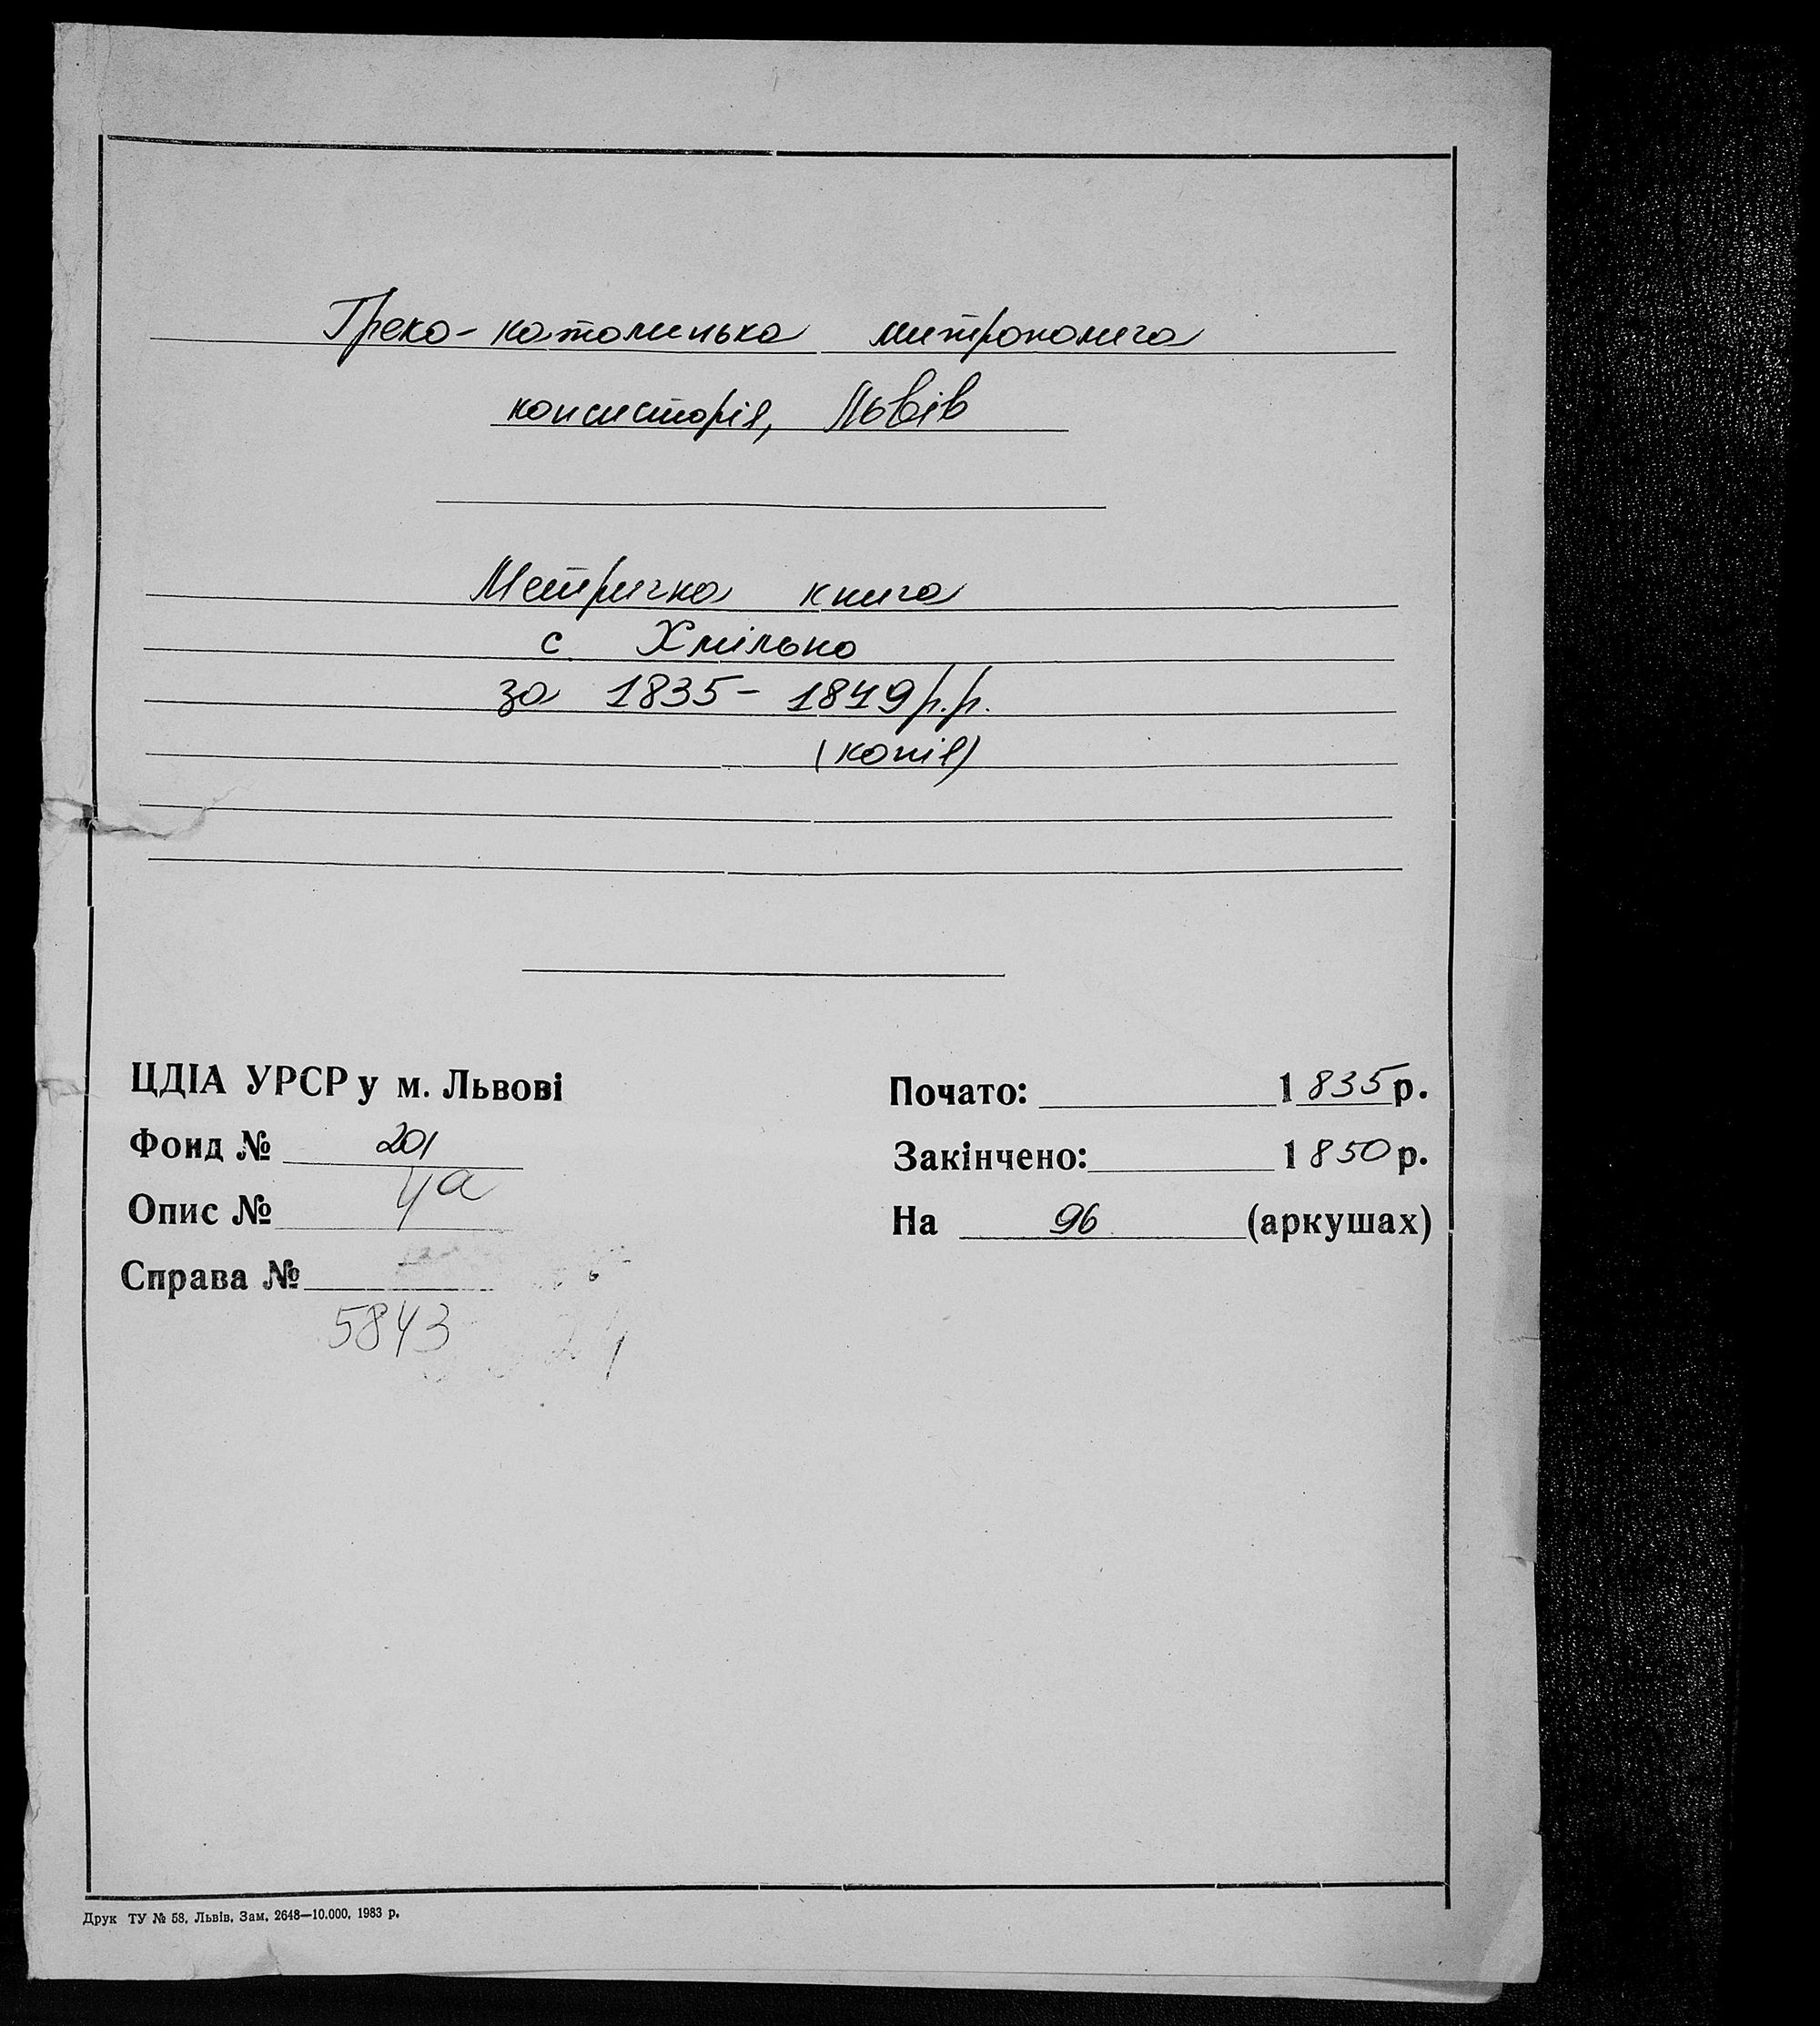 Греко-католицька митрополича
консисторія, Львів
Метрична книга
с. Хмілько
за 1835-1849 р.р.
(копія)
ЦДІА УРСР у м. Львові
Фонд № 201
Опис № 4а
Справа №
5843
Почато: 1835 р.
Закінчено: 1850 р.
На 96 (аркушах)
Друк ТУ № 58, Львів, Зам. 2648—10.000, 1983 р.